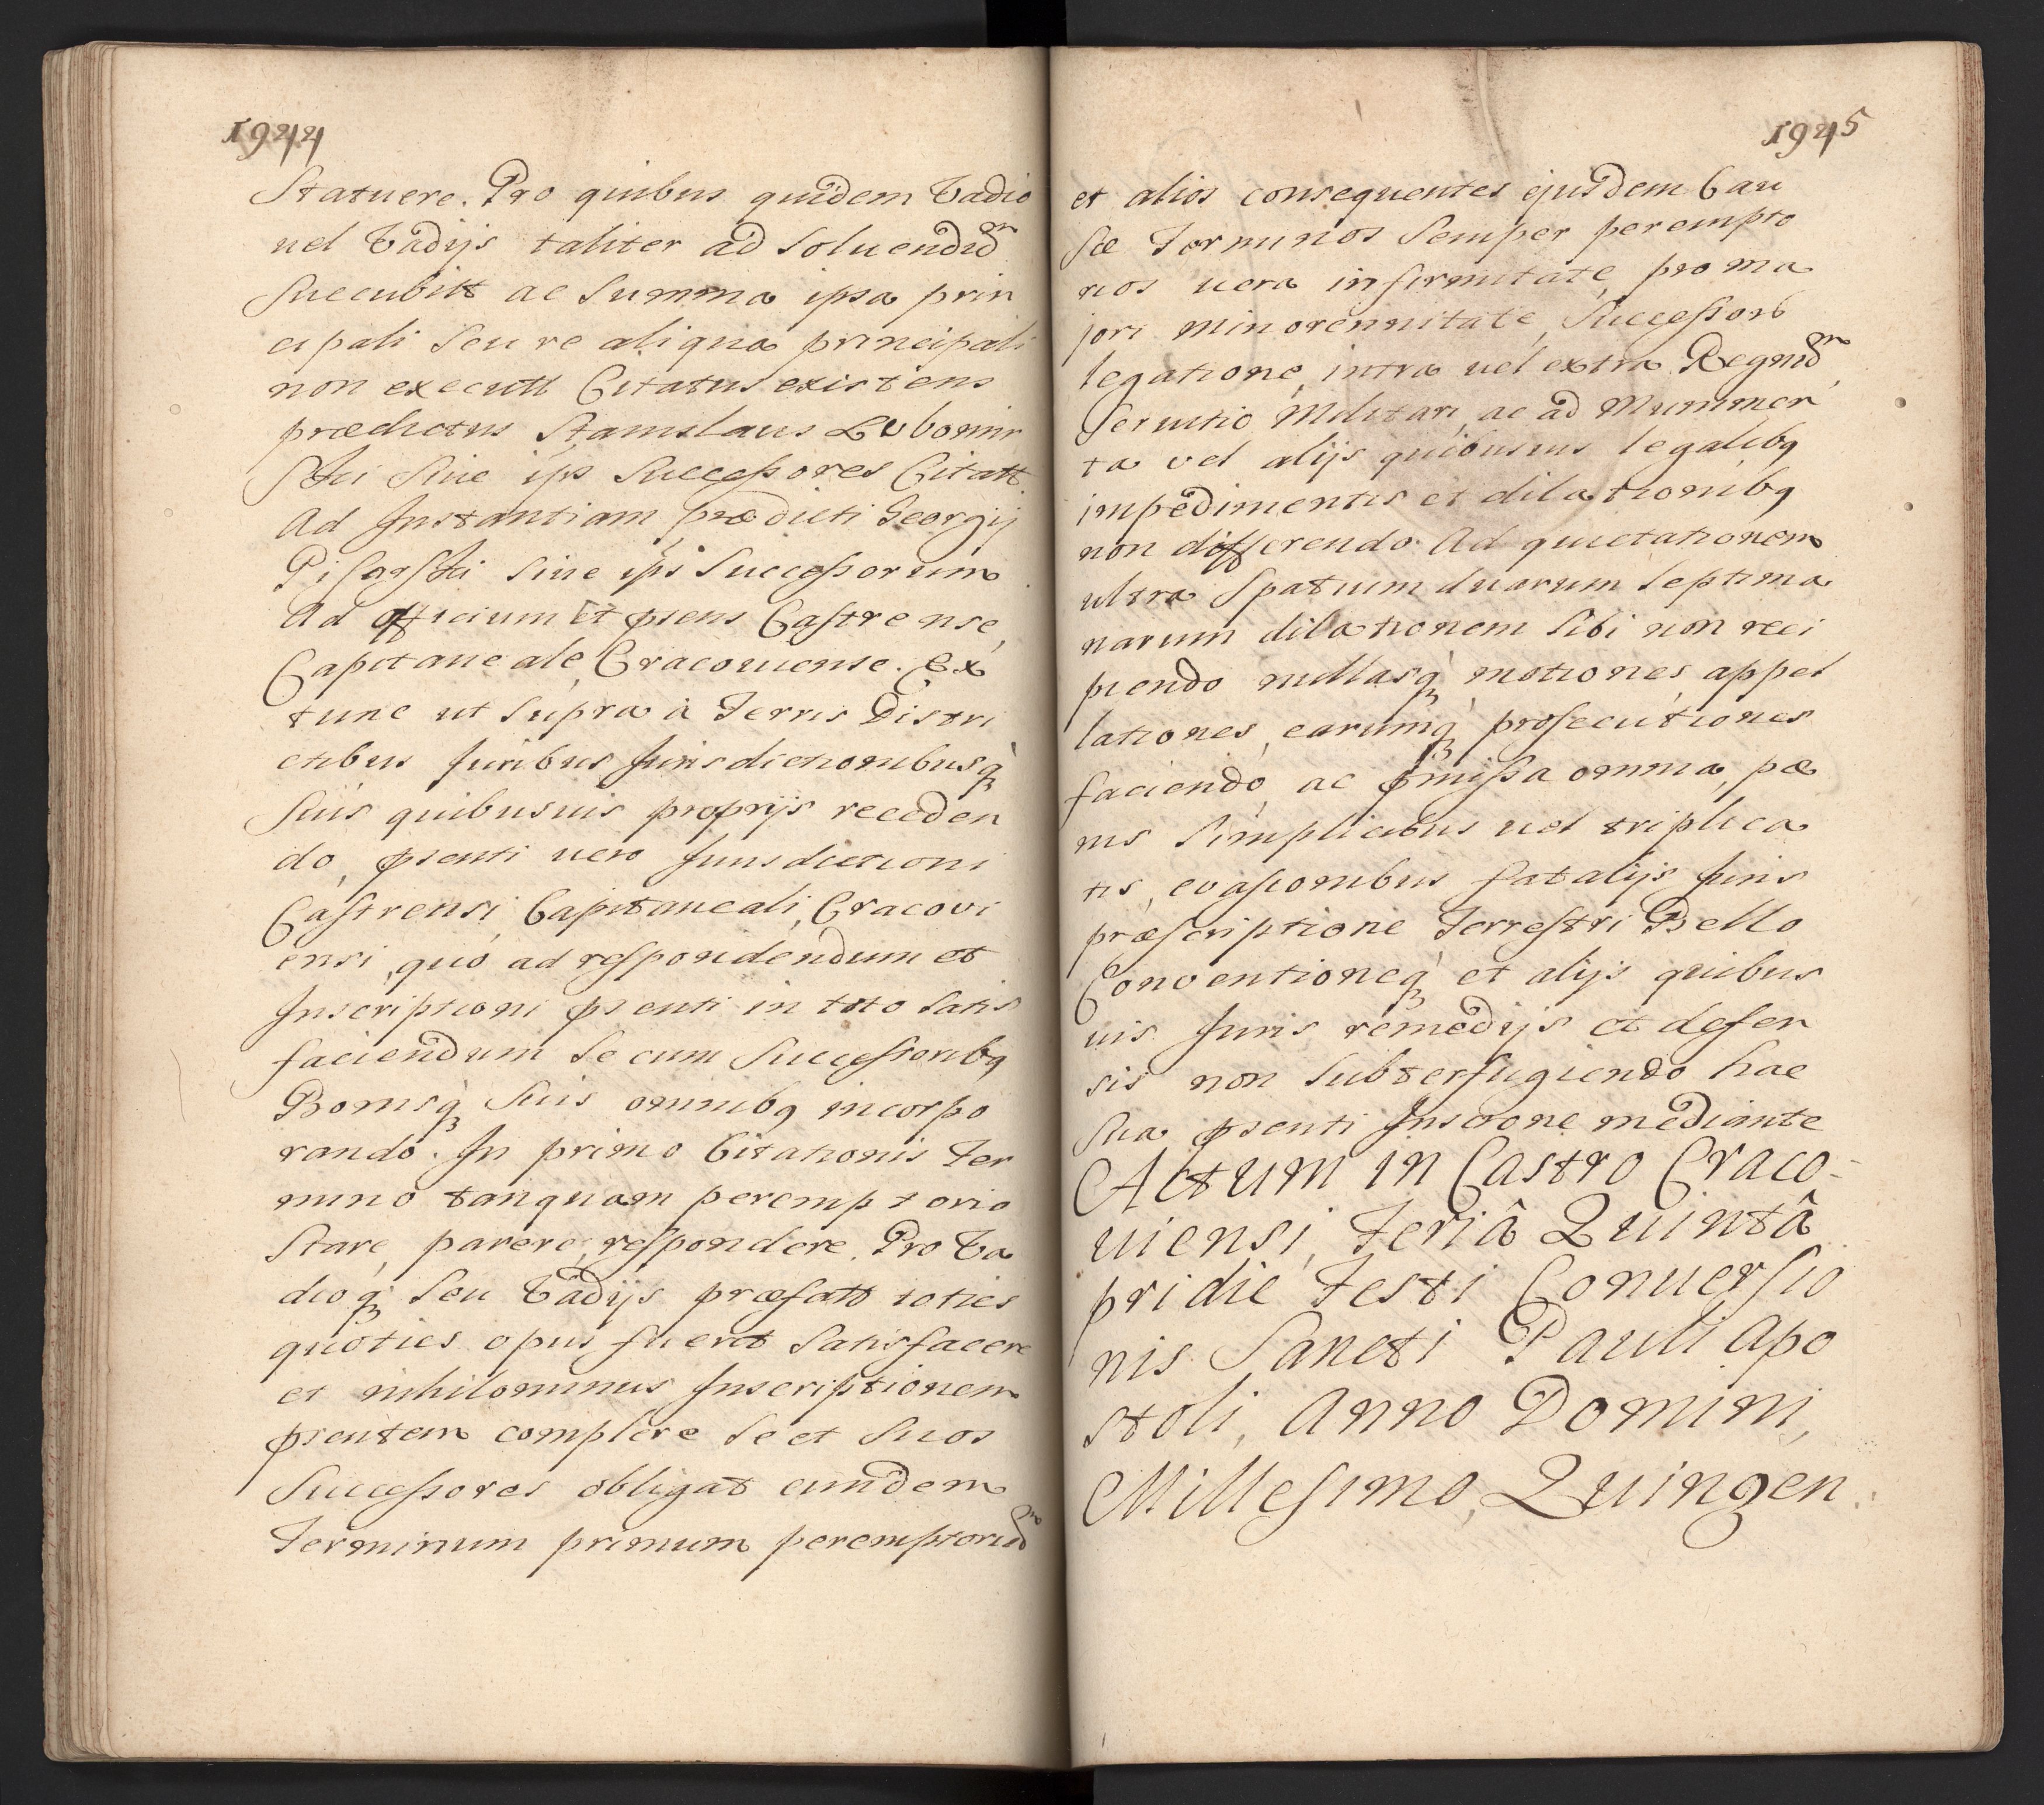 1944
Statuere. Pro quibus quidem Vadio
uel Vadijs taliter ad Soluendũ
Succubitt ac Summa ipsa prin
cipali Seu re aliqua principali
non executt Citatus existens
prædictus Stanislaus Lubomir
Ski Siue ips Successores Citatt.
Ad Instantiam prædicti Georgij
Pisarski Siue ipsi Successorum
Ad officium et psens Castrense,
Capitaneale, Cracouiense. Ex
tunc ut Supra à Terris Distri
ctibus Juribus Jurisdictionibusq,
Suis quibusuis proprijs receden
do, psenti uero Jurisdictioni
Castrensi, Capitaneali, Cracovi
ensi, quo ad respondendum et
Inscriptioni psenti in toto Satis
faciendum Se cum Successoribq
Bonisq, Suis omnibq incorpo
rando. In primo Citationis Ter
mino tanquam peremptorio
Stare, parere, respondere. Pro Va
dioq, Seu Vadijs præfatt toties
quoties opus fuerit Satisfacere
et nihilominus Inscriptionem
psentem complere Se et Suos
Successores obligat eundem
Terminum primum peremptoriũ
1945
et alios consequentes ejusdem Cau
Sæ Terminos Semper perempto
rios uera infirmitate, pro ma
jori minorennitate, Successorb
legatione, intra uel extra Regnũ,
Seruitio Militari, ac ad Munimen
ta vel alijs quibusuis legalibq
impedimentis et dilationibq
non differendo. Ad quietationem
ultra Spatium duarum Septima
narum dilationem Sibi non reci
piendo nullasq, motiones, appel
lationes, earumq, prosecutiones
faciendo, ac pmissa omnia, pæ
nis Simplicibus uel triplica
tis, evasionibus fatalijs Juris
præscriptione Terrestri Bello
Conventioneq, et alijs quibus
uis Juris remedijs et defen
sis non Subterfugiendo hac
Sua psenti Inscrone mediante
Actum in Castro Craco-
uiensi, Feriâ Quintâ
pridie Festi Conuersio
nis Sancti Pauli Apo
stoli, Anno Domini,
Millesimo, Quingen